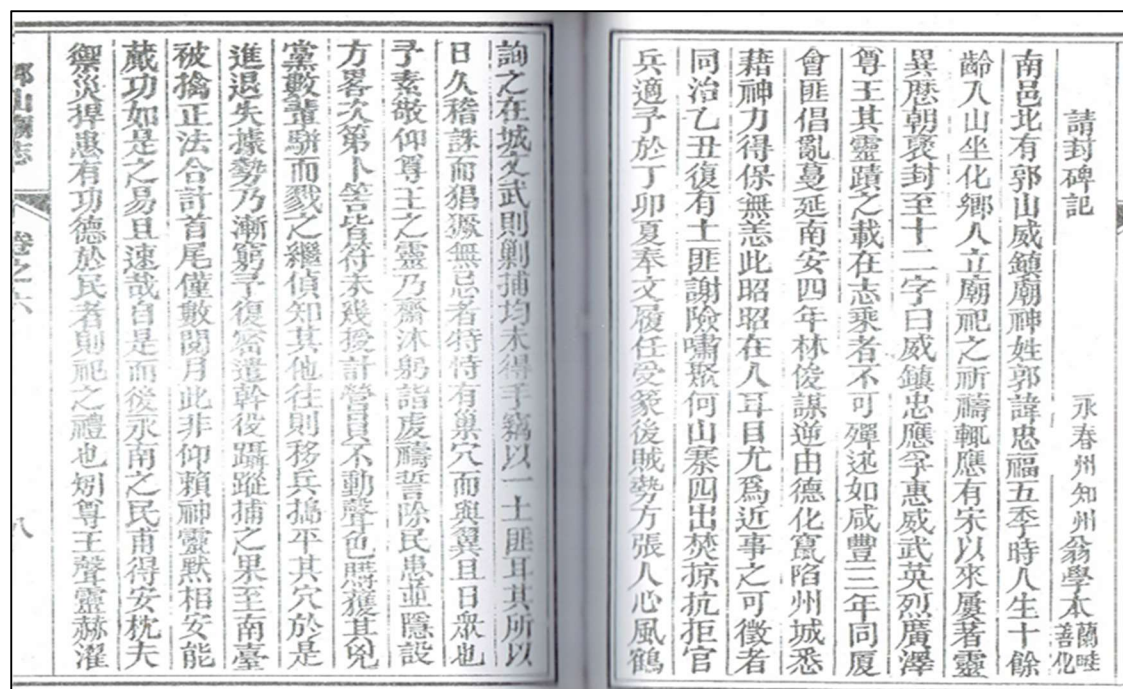 請封碑記
永春州知州翁學本蘭畦善化
南邑北有郭山威鎮廟神姓郭諱忠福五季時人生十餘
齡入山坐化鄉人立廟祀之祈禱輒應有宋以來屢著靈
異歷朝褒封至十二字曰威鎮忠應孚惠威武英烈廣澤
尊王其靈蹟之載在志乘者不可殫述如咸豐三年同厦
會匪倡亂蔓延南安四年林俊謀逆由德化竄陷州城悉
藉神力得保無恙此昭昭在人耳目尤爲近事之可徵者
同治乙丑復有土匪謝險嘯聚何山寨四出焚掠抗拒官
兵適予於丁卯夏奉文履任受篆後賊勢方張人心風鶴
詢之在城文武則剿捕均未得手竊以一土匪耳其所以
日久稽誅而猖獗無忌者特恃有巢穴而與翼且日眾也
予素敬仰尊王之靈乃齋沐躬詣虔禱誓除民患並隱設
方畧次第卜筶皆符未幾授計營員不動聲色厯獲其兇
黨數輩駢而戮之繼偵知其他往則移兵搗平其穴於是
進退失據勢乃漸窮予復密遣幹役躡蹤捕之果至南臺
被擒正法合計首尾僅數閱月此非仰賴神靈默相安能
蕆功如是之易且速哉自是而後永南之民甫得安枕夫
禦災捍患有功德於民者則祀之禮也矧尊王聲靈赫濯
郭山廟志
卷之六
八